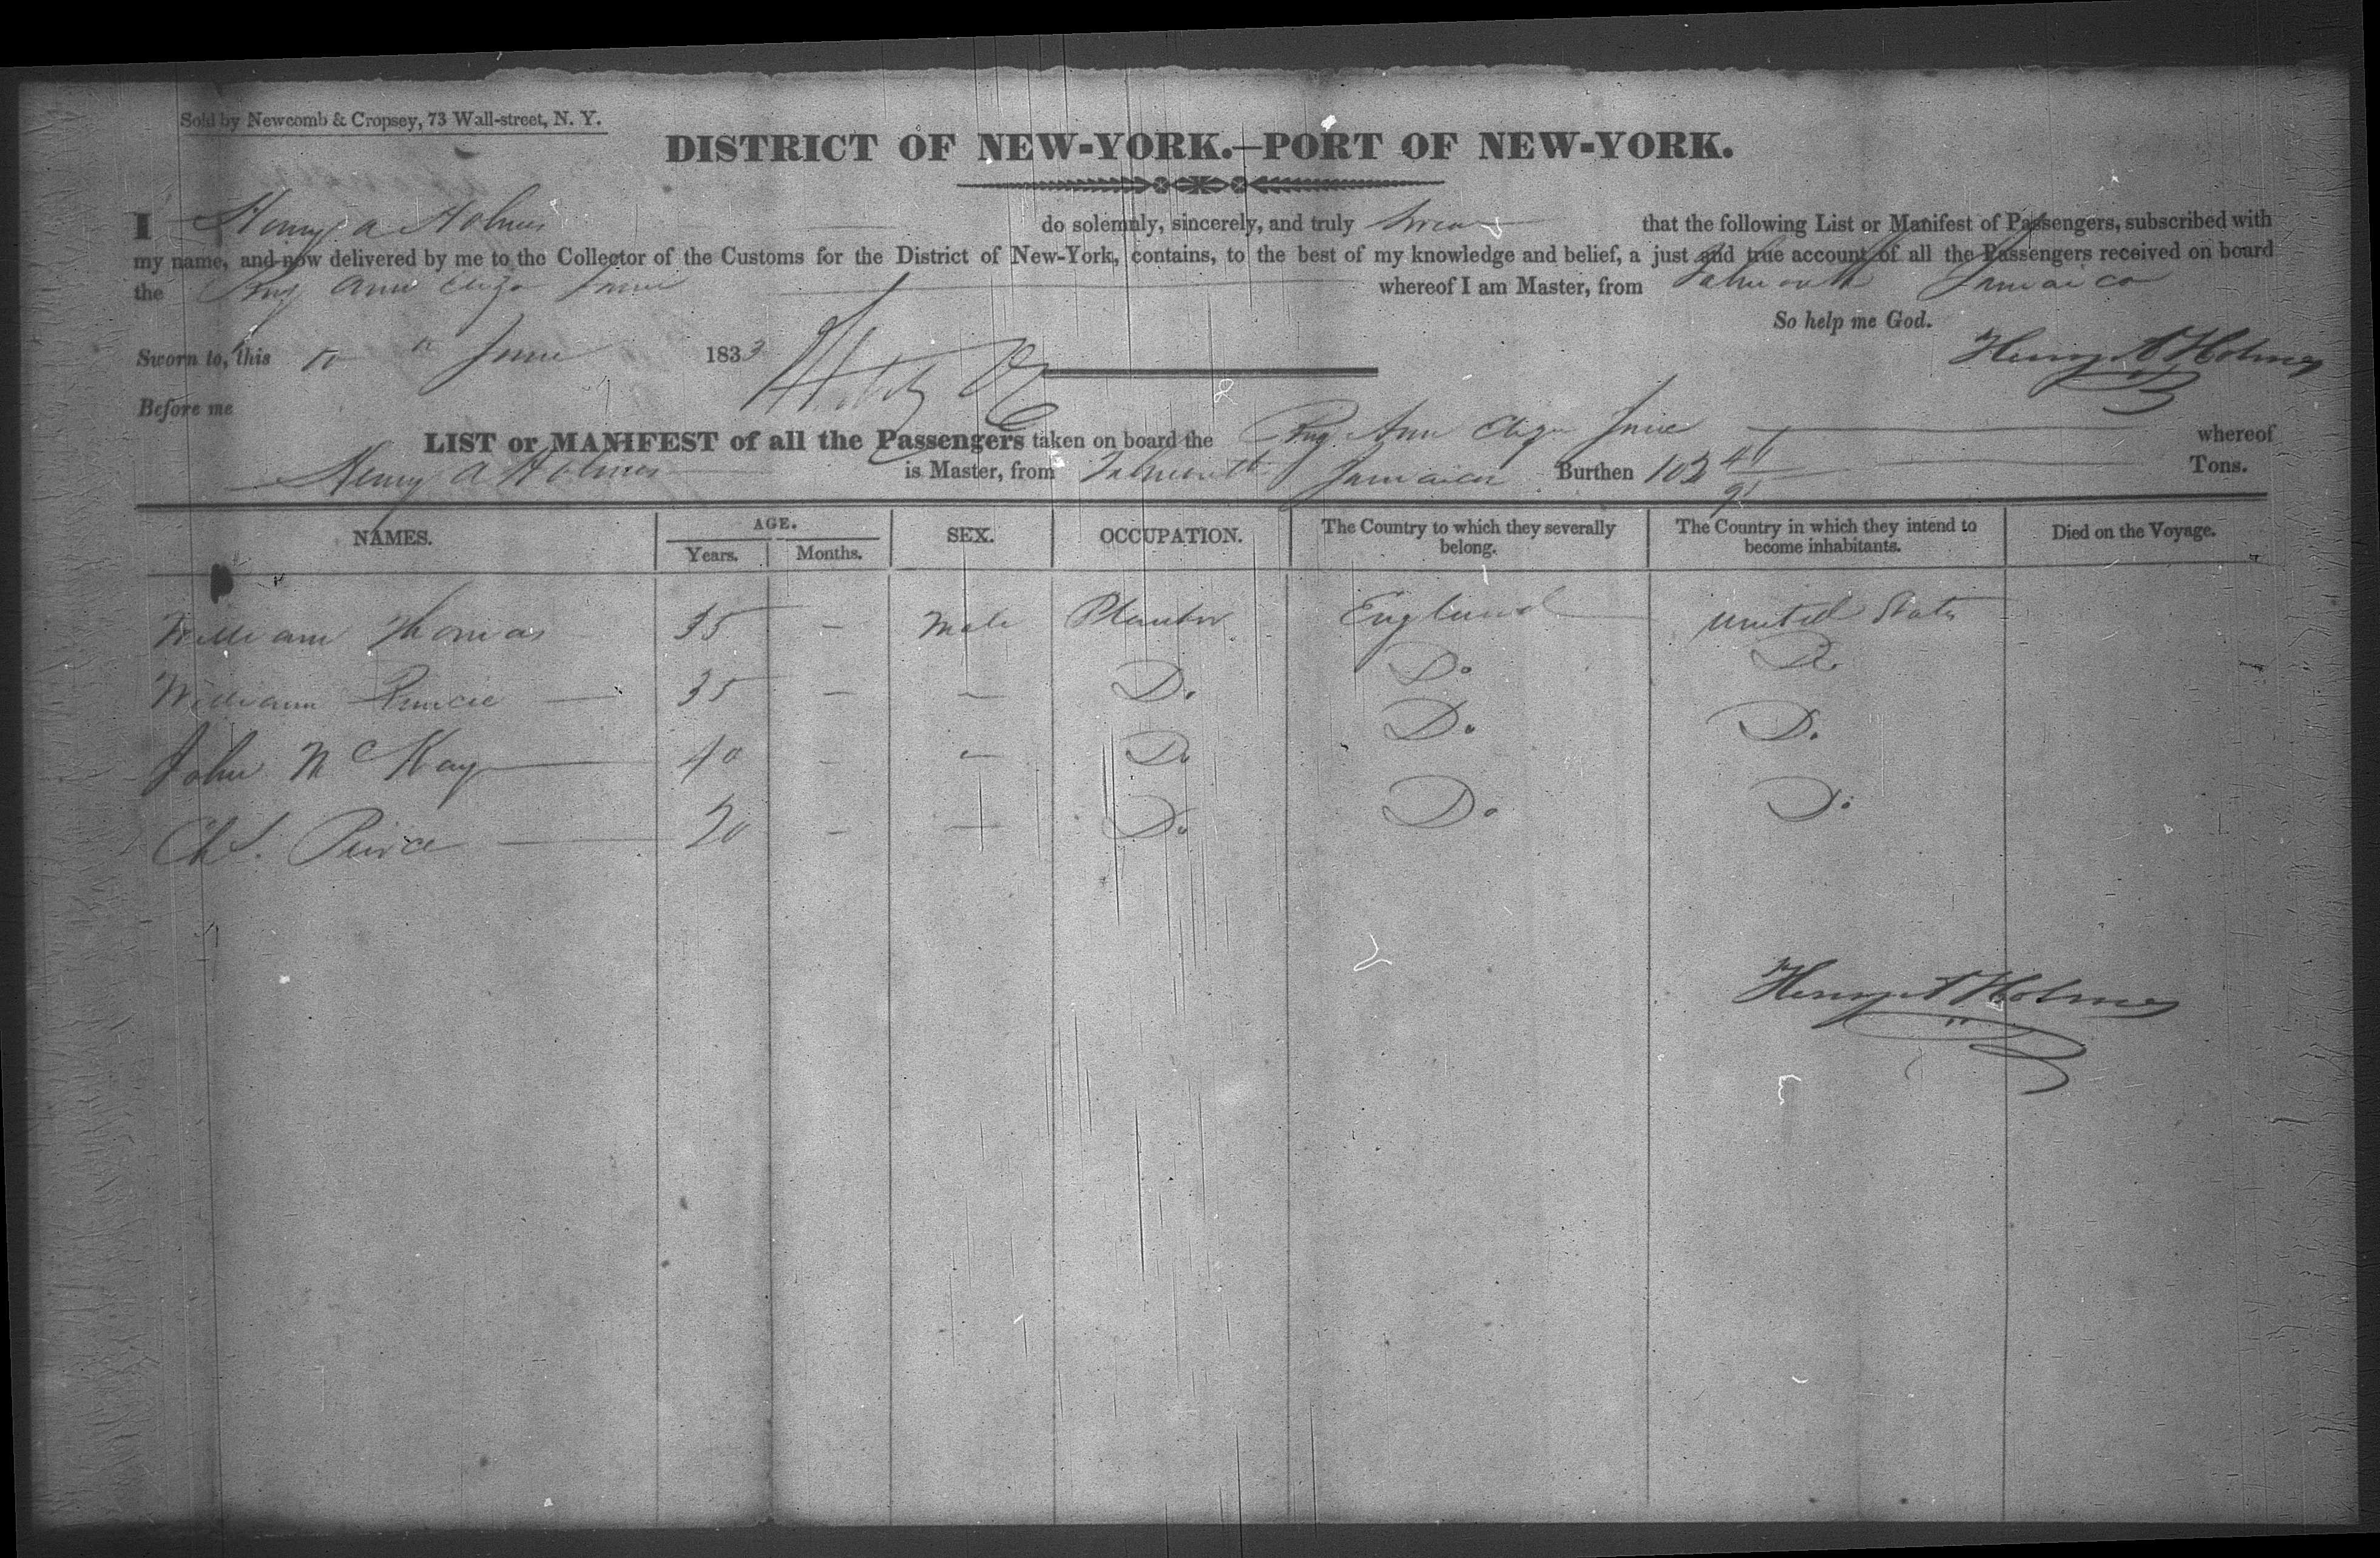 Sold by Newcomb & Cropsey, 73 Wall-street, N. Y.
DISTRICT OF NEW-YORK.—PORT OF NEW-YORK.
I Henry A Holmes do solemnly, sincerely, and truly swear that the following List or Manifest of Passengers, subscribed with
my name, and now delivered by me to the Collector of the Customs for the District of New-York, contains, to the best of my knowledge and belief, a just and true account of all the Passengers received on board
the Brig Ann Eliza whereof I am Master, from Falmouth Jamaica
So help me God.
Sworn to, this June 1833
Henry A Holmes
Before me
LIST or MANIFEST of all the Passengers taken on board the Brig Ann Eliza whereof
Henry A Holmes is Master, from Falmouth Jamaica Burthen Tons.
NAMES. AGE. SEX. OCCUPATION. The Country to which they severally belong. The Country in which they intend to become inhabitants. Died on the Voyage.
Years. Months.
William Thomas 35 – Male Planter England United States
William 35 – – Do Do Do
John McKay 40 – – Do Do Do
Chs. Peirce – – Do Do Do
Henry A Holmes